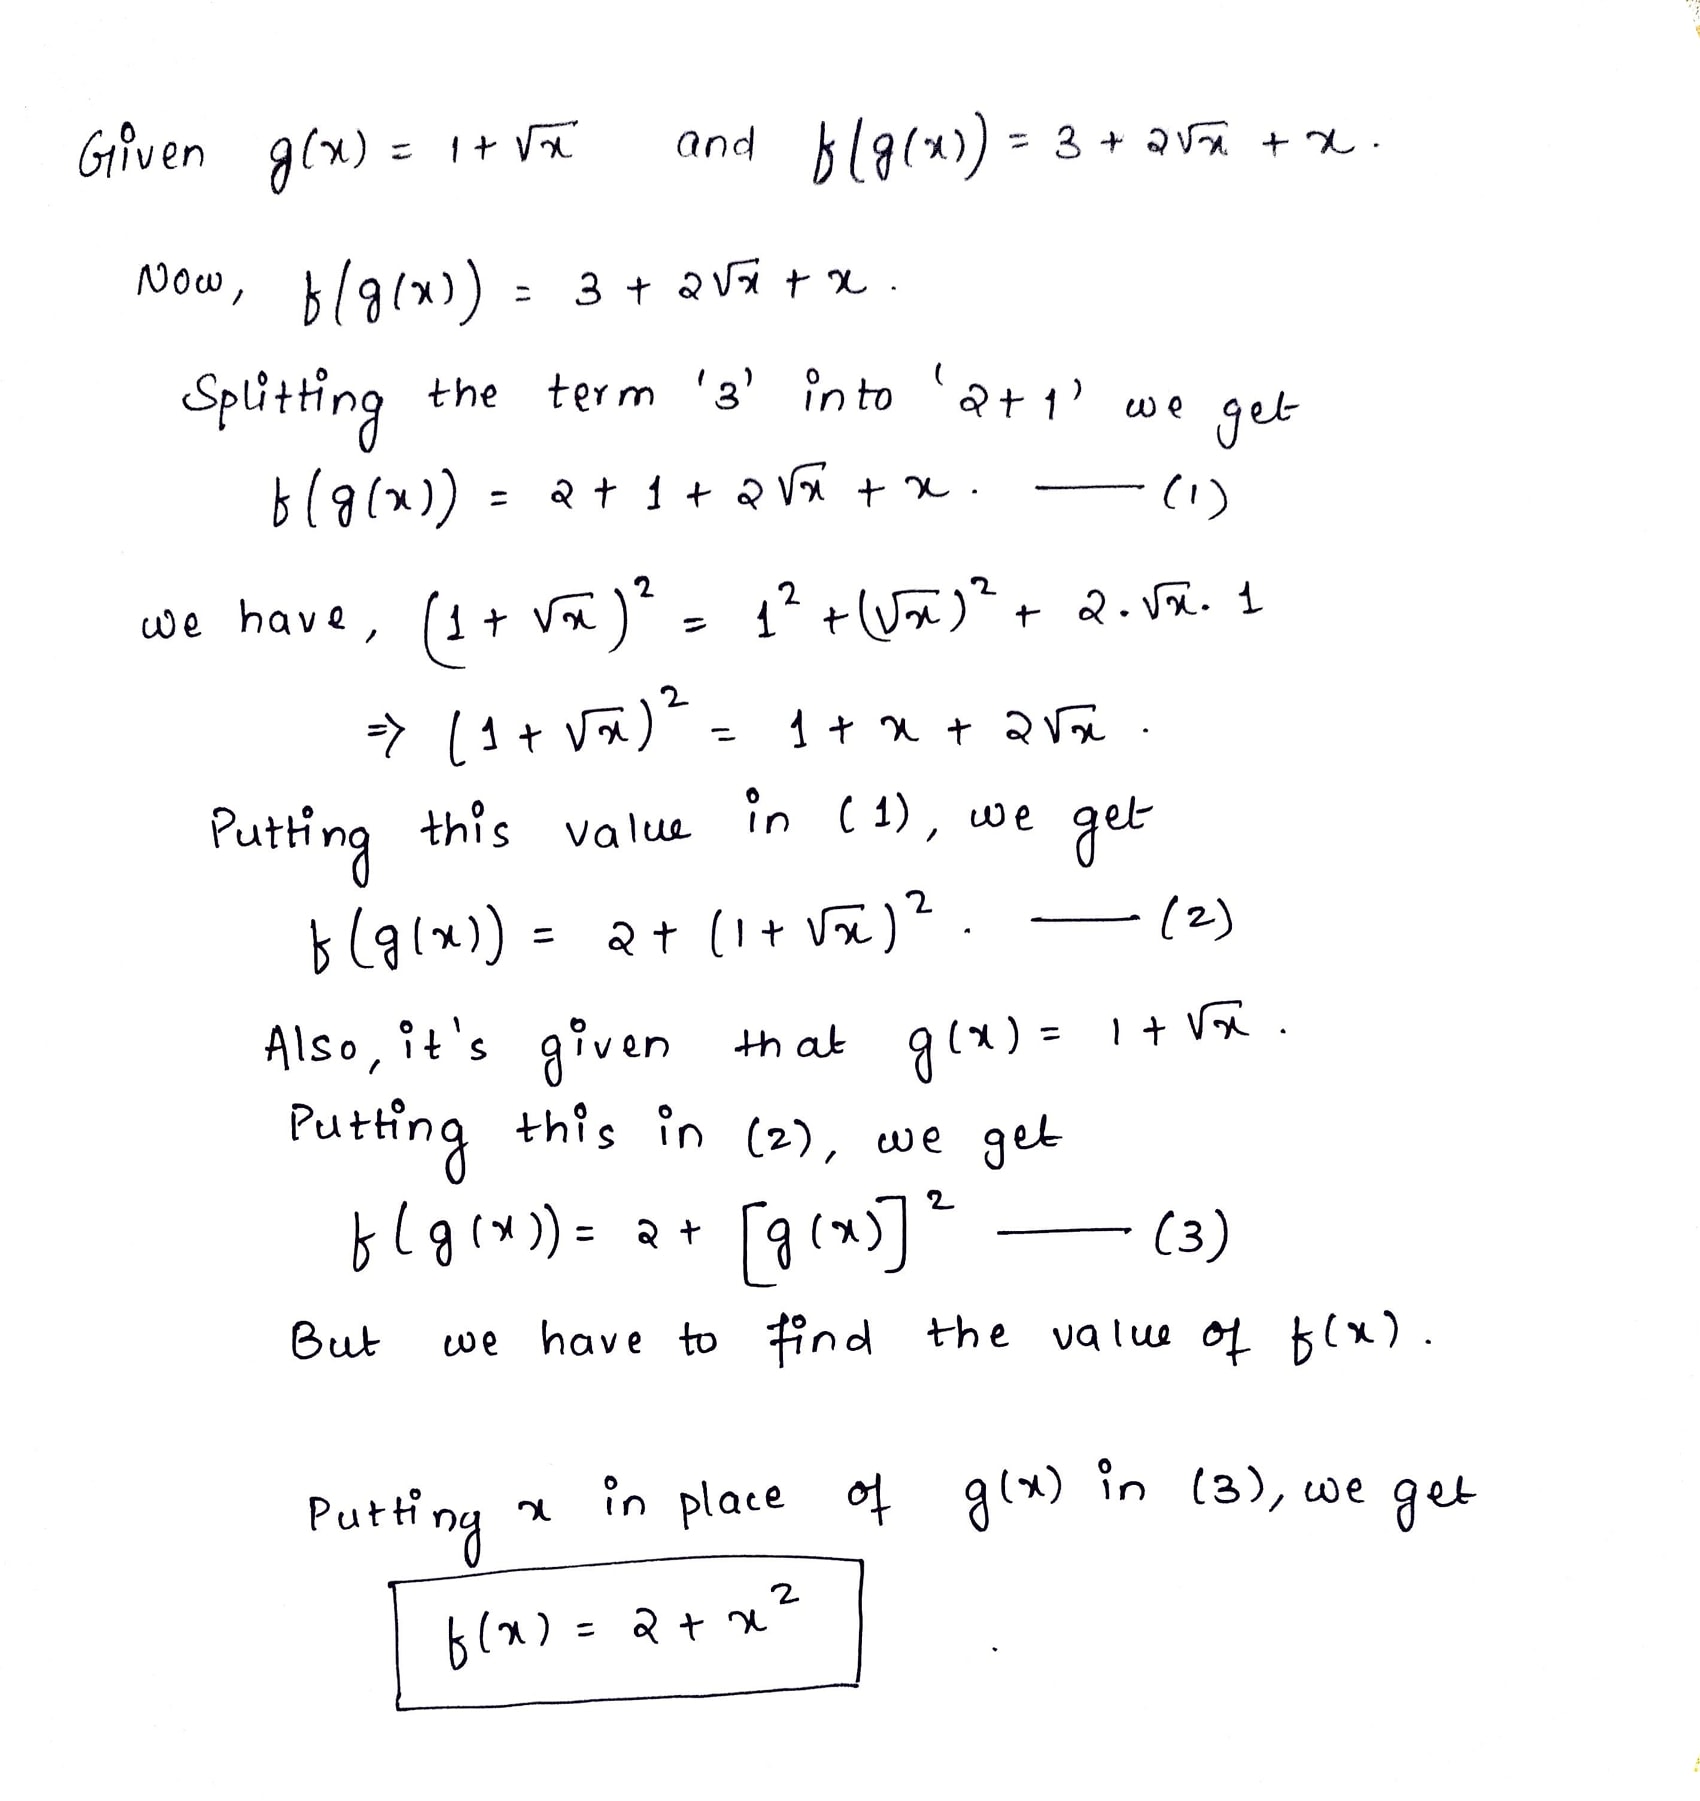 Given g(x) = 1 + √x and f(g(x)) = 3 + 2√x + x.
Now, f(g(x)) = 3 + 2√x + x.
Splitting the term '3' into '2+1' we get
f(g(x)) = 2 + 1 + 2√x + x. —— (1)
we have, (1 + √x)² = 1² + (√x)² + 2.√x. 1
⇒ (1 + √x)² = 1 + x + 2√x.
Putting this value in (1), we get
f(g(x)) = 2 + (1 + √x)². —— (2)
Also, it's given that g(x) = 1 + √x.
Putting this in (2), we get
f(g(x)) = 2 + [g(x)]² —— (3)
But we have to find the value of f(x).
Putting x in place of g(x) in (3), we get
f(x) = 2 + x²